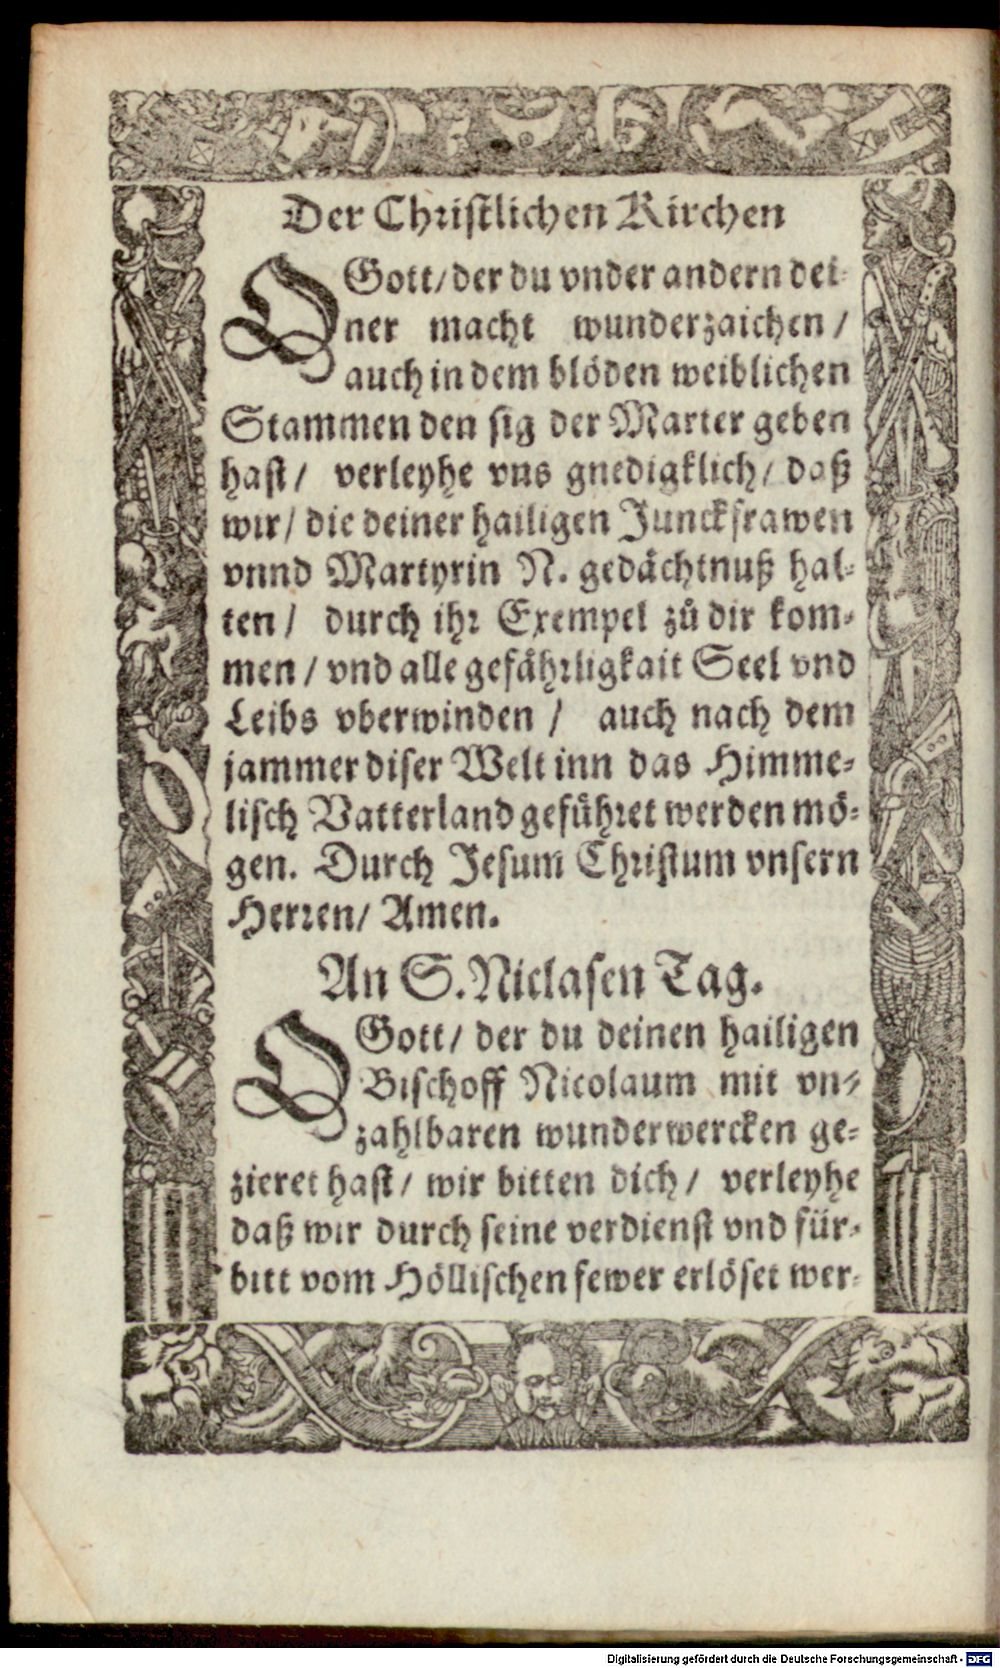 Der Christlichen Kirchen
O Gott/ der du vnder andern dei-
ner macht wunderzaichen/
auch in dem blöden weiblichen
Stammen den sig der Marter geben
hast/ verleyhe vns gnedigklich/ daß
wir/ die deiner hailigen Junckfrawen
vnnd Martyrin N. gedächtnuß hal-
ten/ durch ihr Exempel zů dir kom-
men/ vnd alle gefährligkait Seel vnd
Leibs vberwinden/ auch nach dem
jammer diser Welt inn das Himme-
lisch Vatterland geführet werden mö-
gen. Durch Jesum Christum vnsern
Herren/ Amen.
An S. Niclasen Tag.
O Gott/ der du deinen hailigen
Bischoff Nicolaum mit vn-
zahlbaren wunderwercken ge-
zieret hast/ wir bitten dich/ verleyhe
daß wir durch seine verdienst vnd für-
bitt vom Höllischen fewer erlöset wer-
Digitalisierung gefördert durch die Deutsche Forschungsgemeinschaft - DFG